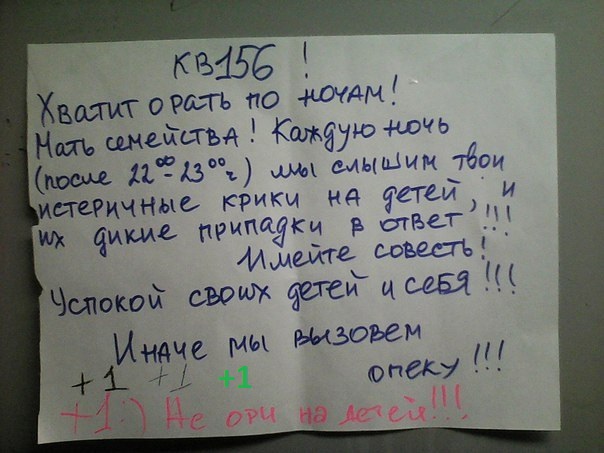 КВ156!
Хватит орать по ночам!
Мать семейства! Каждую ночь
(после 22⁰⁰-23⁰⁰ч) мы слышим твои
истеричные крики на детей, и
их дикие припадки в ответ!!!
Имейте совесть!
Успокой своих детей и себя!!!
Иначе мы вызовем
опеку!!!
+1 +1 +1
+1:) Не ори на детей!!!